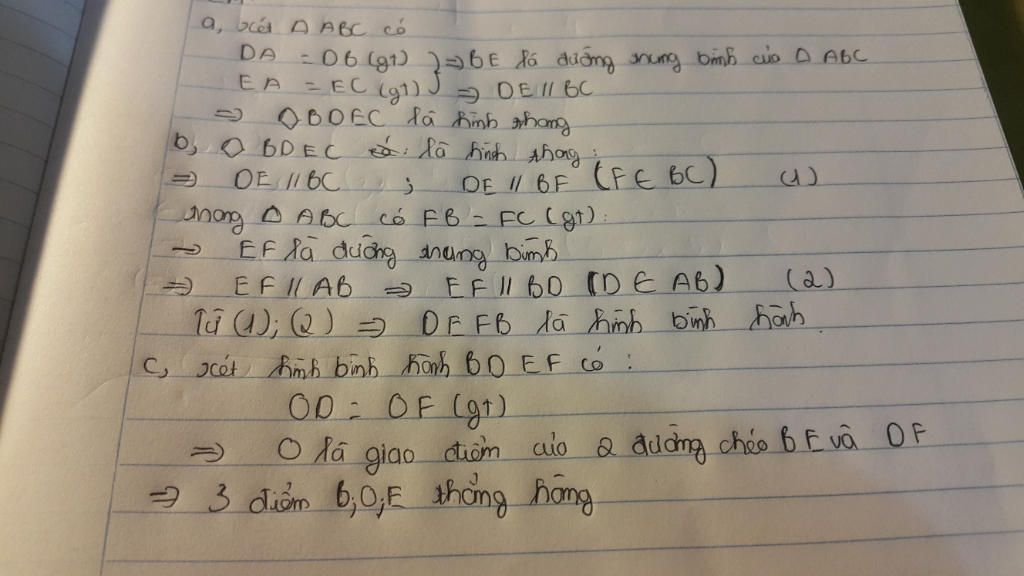 a, xét Δ ABC có
DA = DB (gt) } ⇒ BE là đường trung bình của Δ ABC
EA = EC (gt) } ⇒ DE // BC
⇒ ◊ BDEC là hình thang
b, ◊ BDEC là hình thang:
⇒ DE // BC ; DE // BF (F ∈ BC) (1)
trong Δ ABC có FB = FC (gt):
⇒ EF là đường trung bình
⇒ EF // AB ⇒ EF // BD (D ∈ AB) (2)
Từ (1); (2) ⇒ DEFB là hình bình hành.
c, xét hình bình hành BDEF có:
OD = OF (gt)
⇒ O là giao điểm của 2 đường chéo BE và DF
⇒ 3 điểm B;O;E thẳng hàng